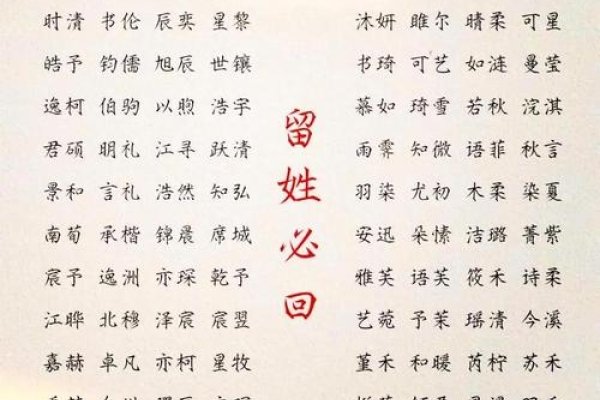 时清 书伦 辰奕 星黎
皓予 钧儒 旭辰 世镶
逸柯 伯驹 以煦 浩宇
君硕 明礼 江寻 跃清
景和 言礼 浩然 知弘
南荀 承楷 锦晨 席城
宸予 逸洲 亦琛 乾予
江晔 北穆 泽宸 宸翌
嘉赫 卓凡 亦柯 星牧
留姓必回
沐妍 睢尔 晴柔 可星
书琦 可艺 如涟 曼莹
慕如 琦雪 若秋 浣淇
雨霁 知微 语菲 秋言
羽柒 尤初 木柔 染夏
安迅 朵愫 洁璐 菁紫
雅芙 语芙 筱禾 诗柔
艺菀 予茉 瑶清 今溪
堇禾 和暖 芮柠 苏禾